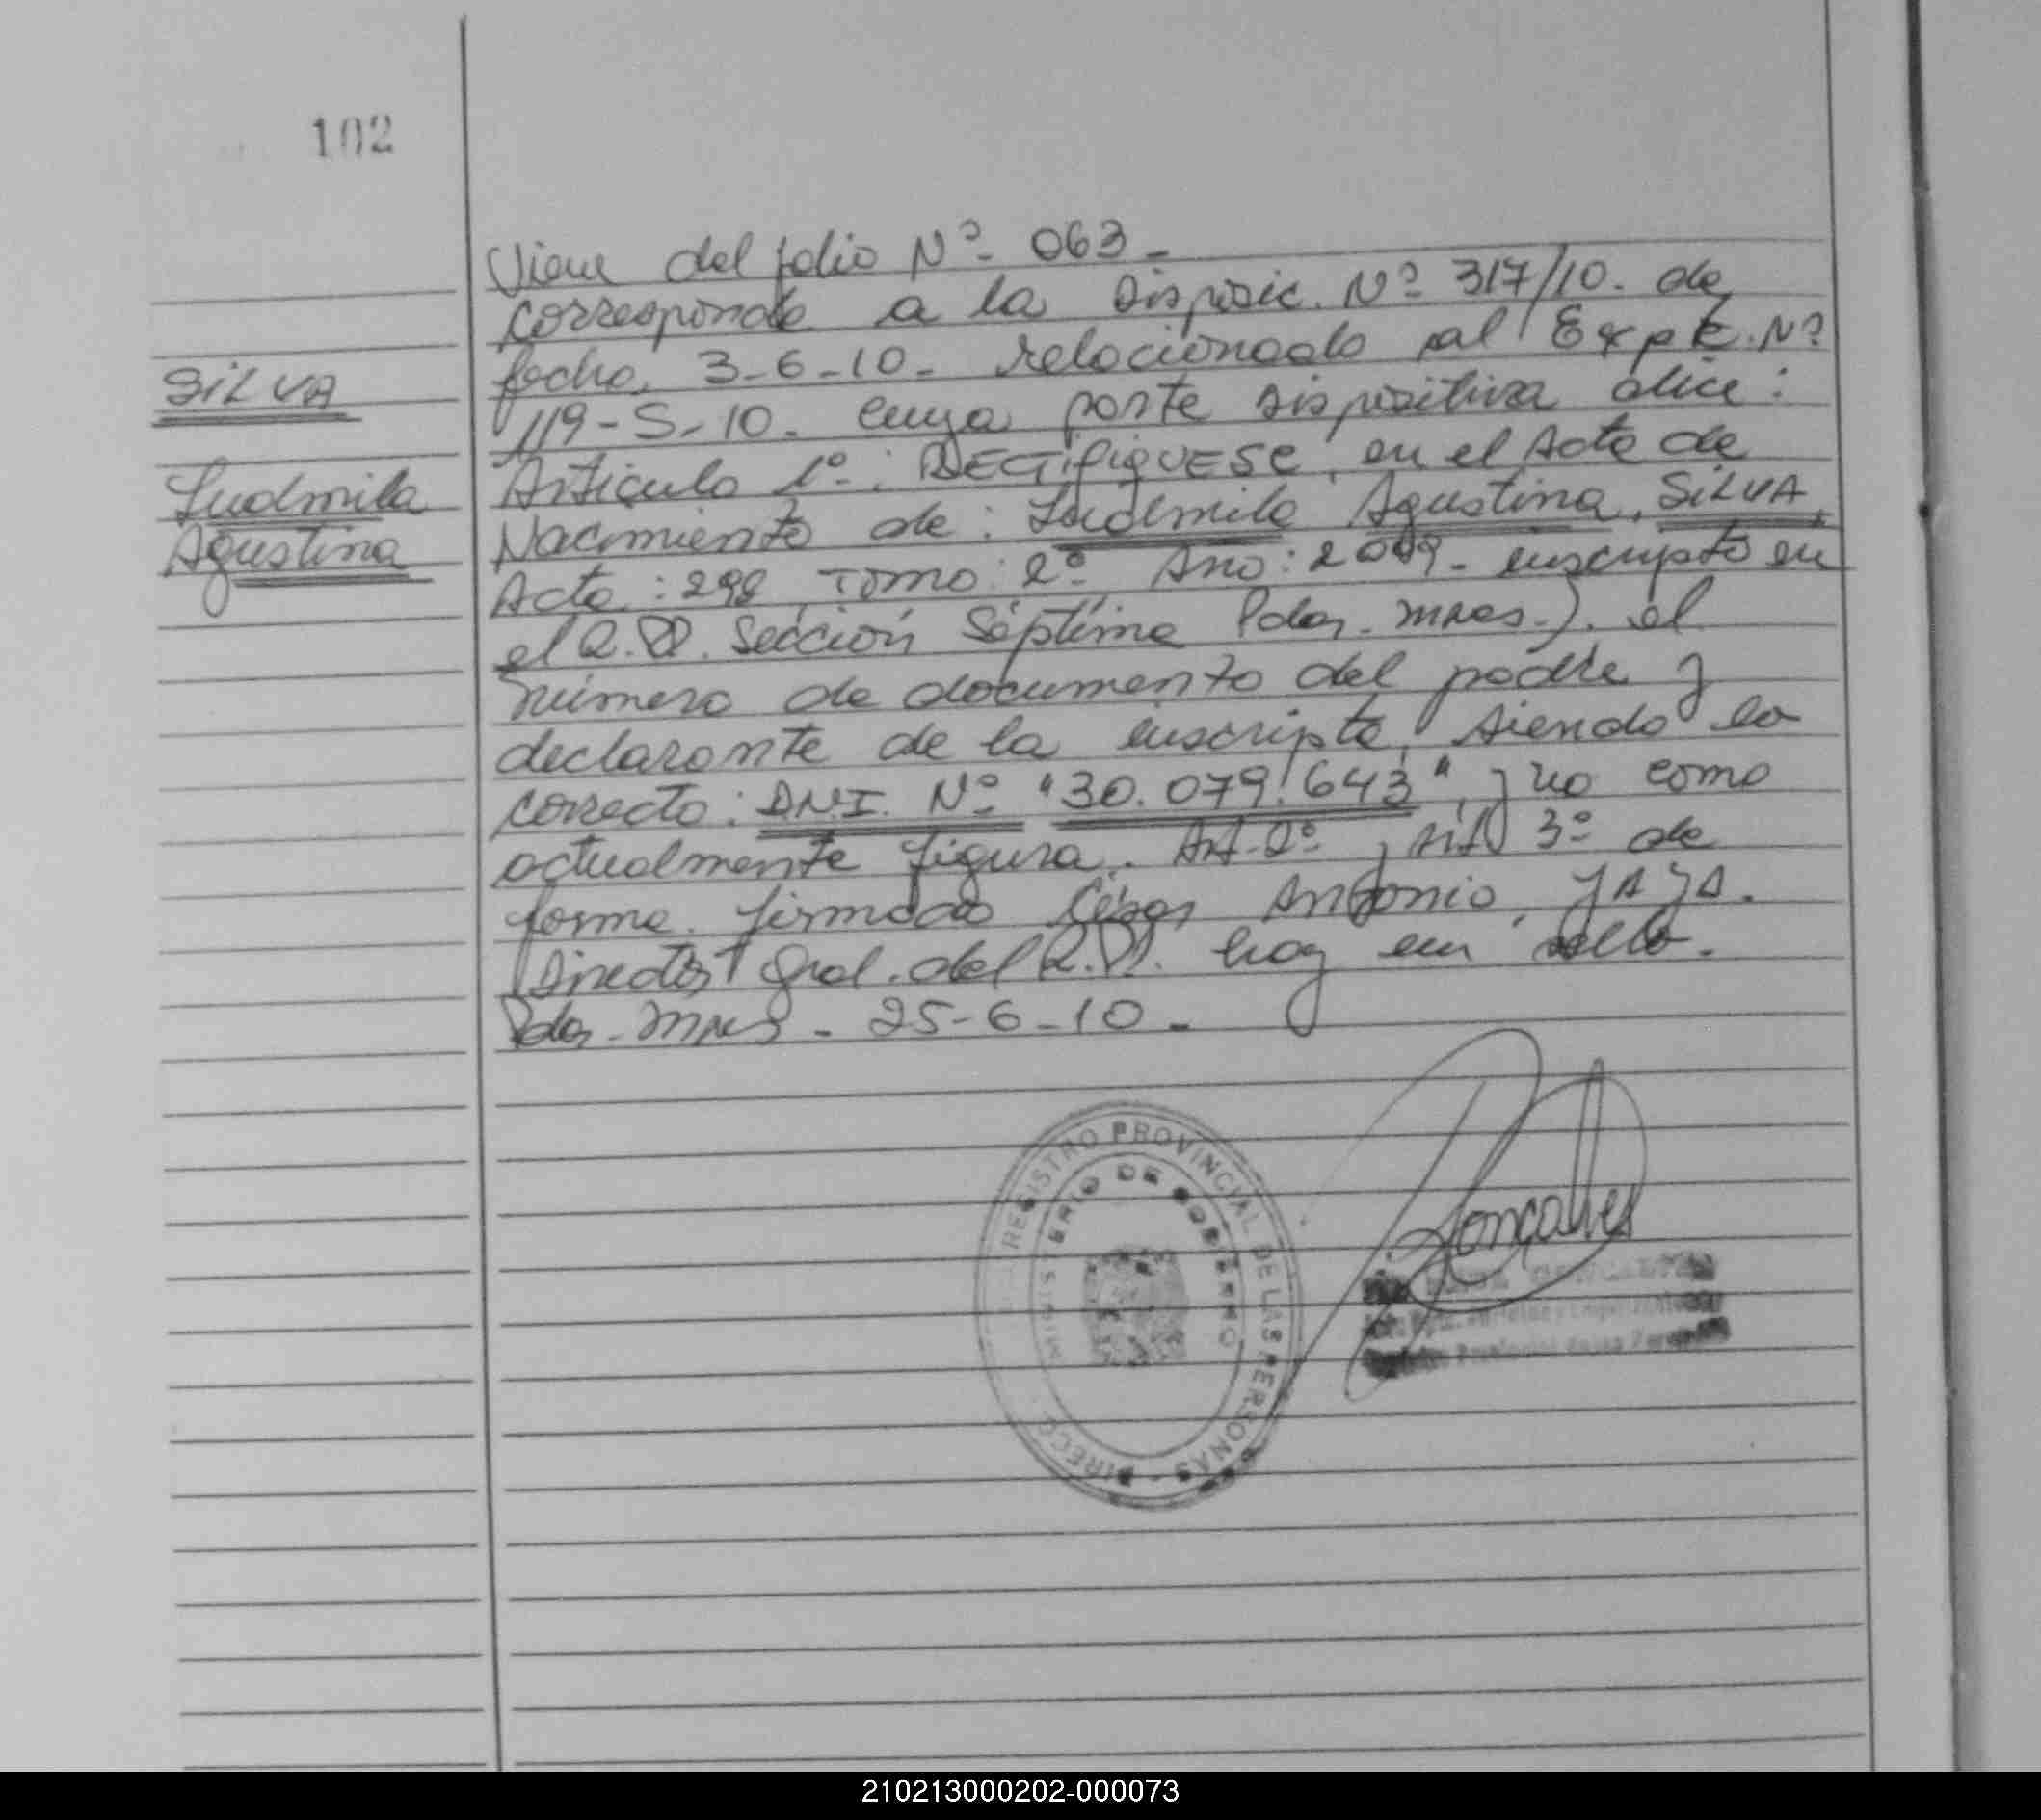 102
Viene del folio Nº- 063-
corresponde a la Disposic. Nº 317/10. de
fecha, 3-6-10- relacionado al Expte. Nº
119-S-10. cuya parte dispositiva dice:
SILVA
Articulo 1º-: RECTIFIQUESE, en el Acta de
Ludmila
Nacimiento de: Ludmila Agustina, SILVA,
Agustina
Acta: 298 Tomo: 2º Año: 2009- inscripta en
el R.P. Sección Séptima Pdas. Mnes.). el
número de documento del padre y
declarante de la inscripta, siendo lo
correcto: D.N.I. Nº "30.079.643", y no como
actualmente figura. Art-2º y Art 3º de
forma. firmado César Antonio, JAJA.
Director Gral. del R.P. hay un sello.
Pdas- Mnes - 25-6-10-
REGISTRO PROVINCIAL DE LAS PERSONAS - DIRECC
MINISTERIO DE GOBIERNO
Gonçalves
210213000202-000073